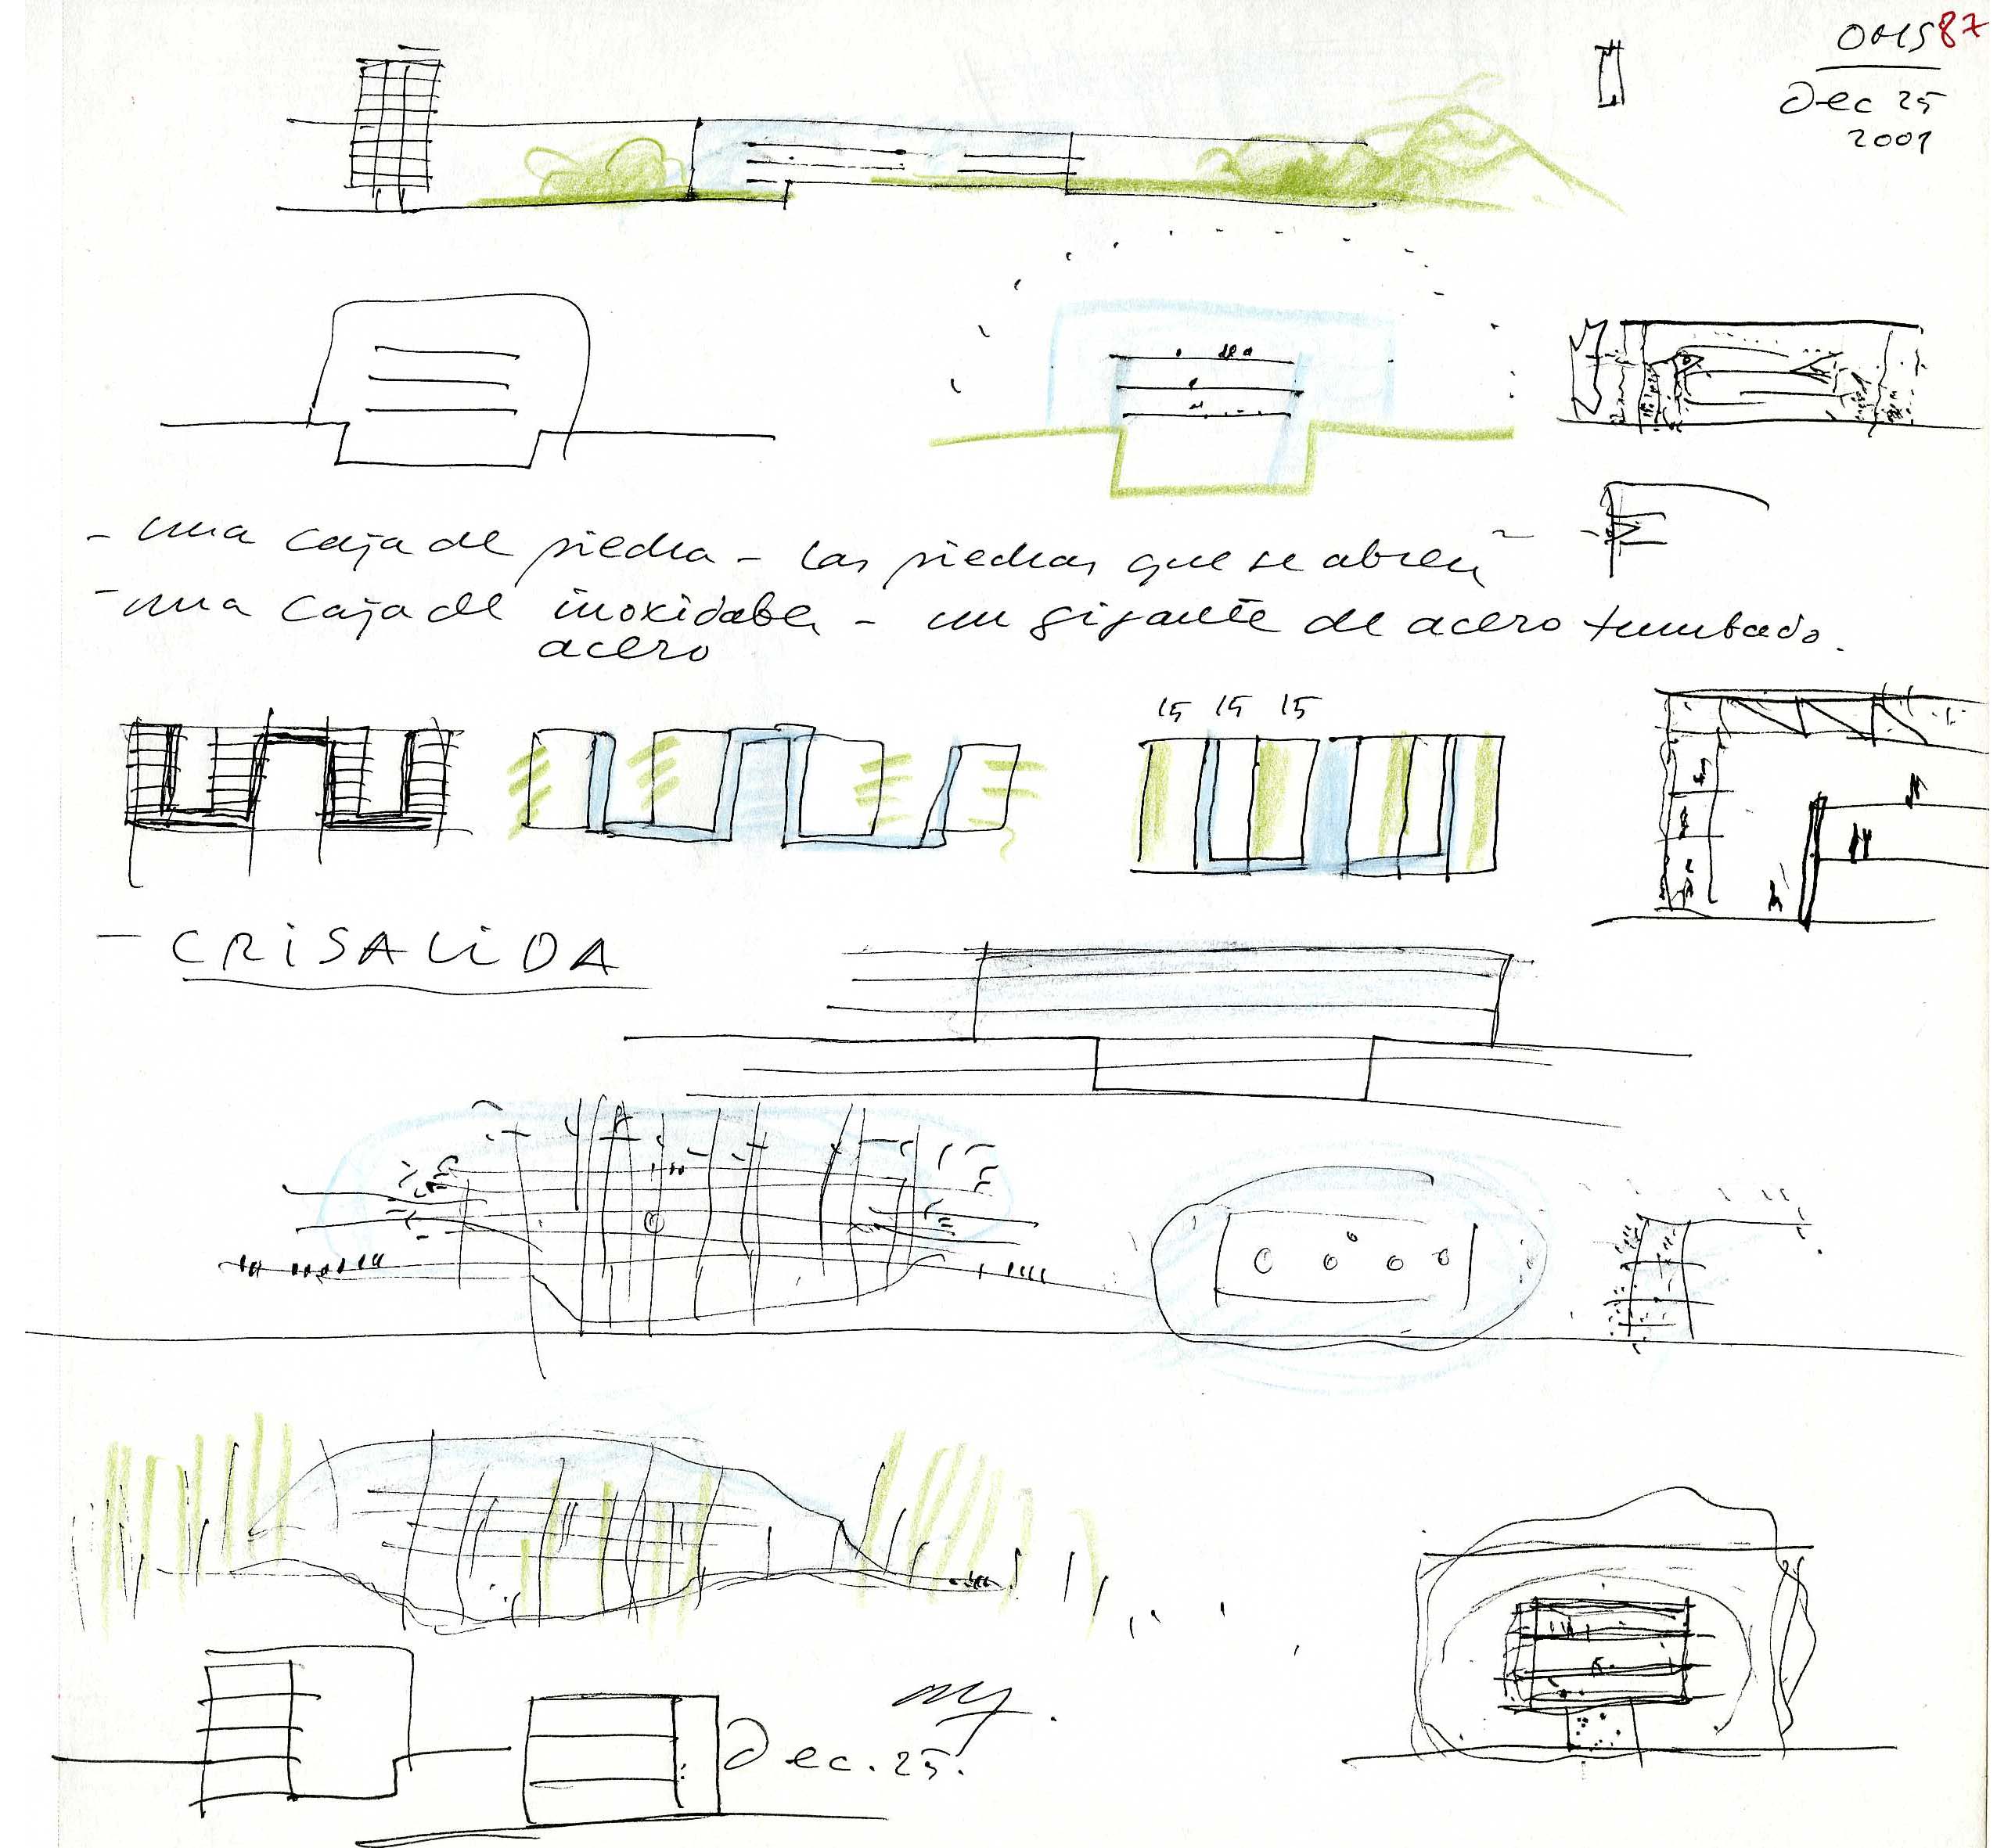 OMS 87
Dec 25
2001
- una caja de piedra - las piedras que se abren -
- una caja de inoxidable - un gigante de acero tumbado.
acero
15 15 15
- CRISALIDA
Dec. 25.